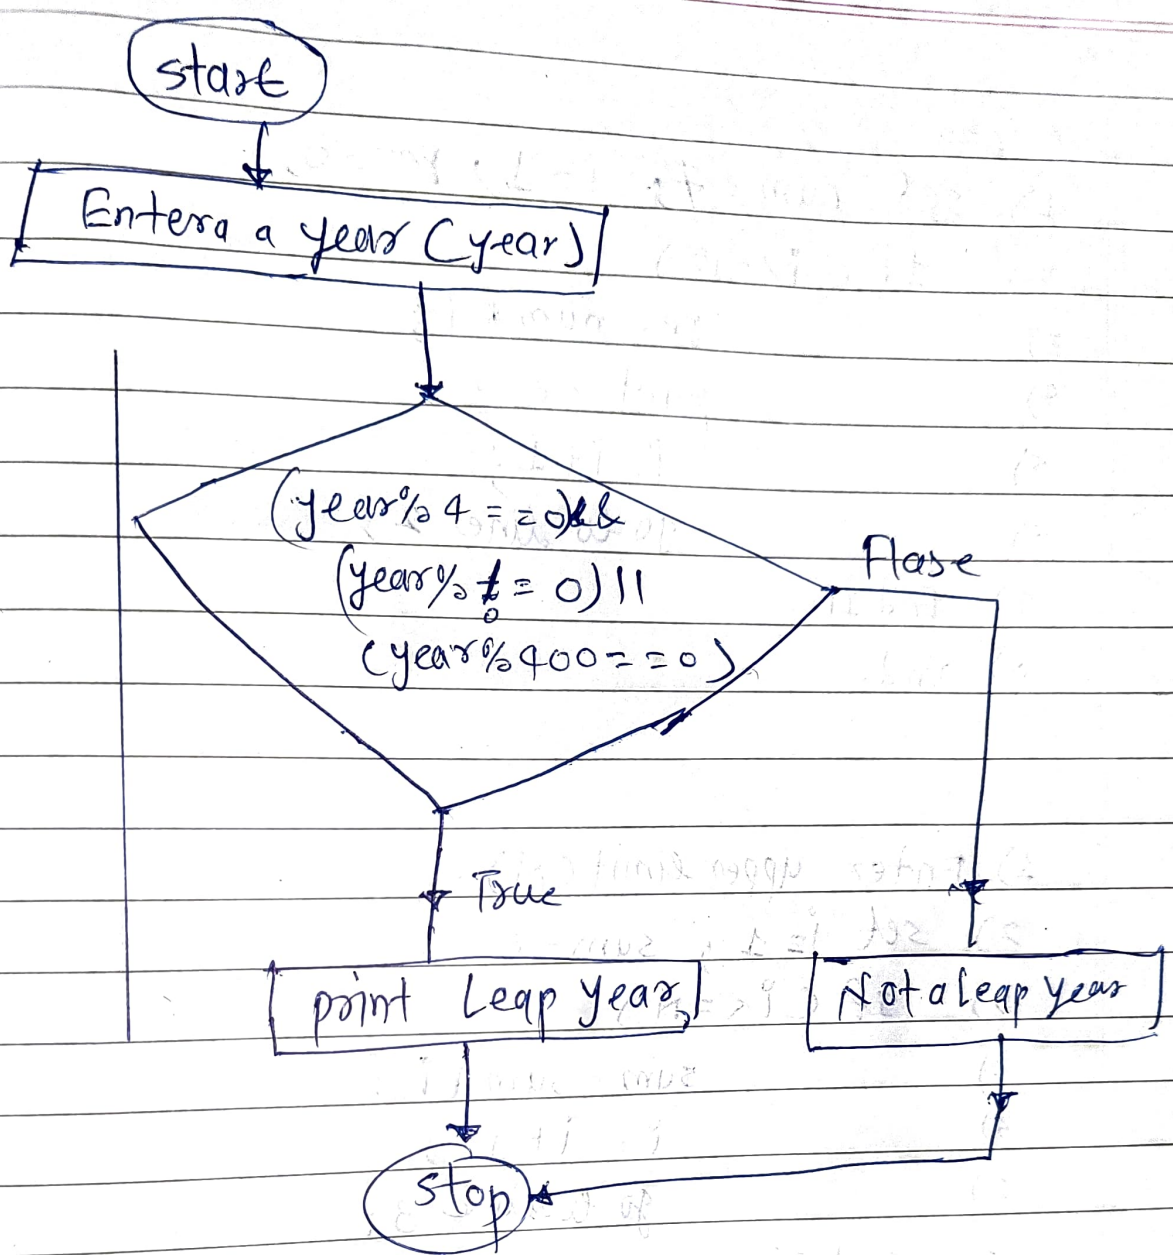 start
Entera a year (year)
(year%4==0)&&
(year% != 0) ||
(year%400==0)
Flase
True
print Leap year
Not a leap year
stop